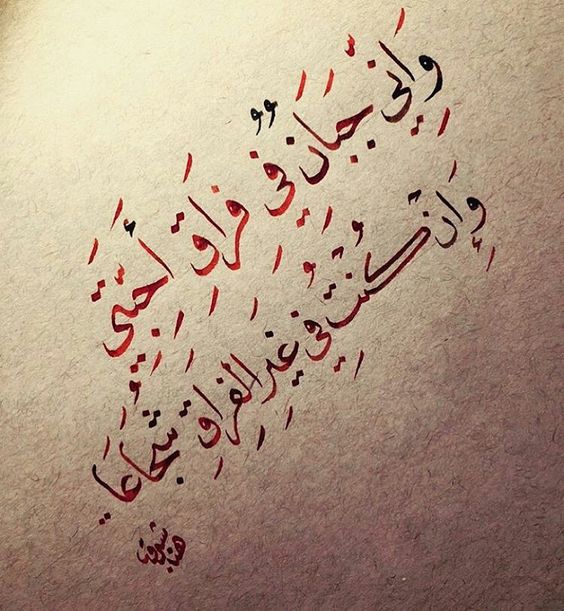 وَإنّي جَبَانٌ في فِرَاقِ أحِبَّتي
وَإن كُنتُ في غَيرِ الفِرَاقِ شُجَاعَا